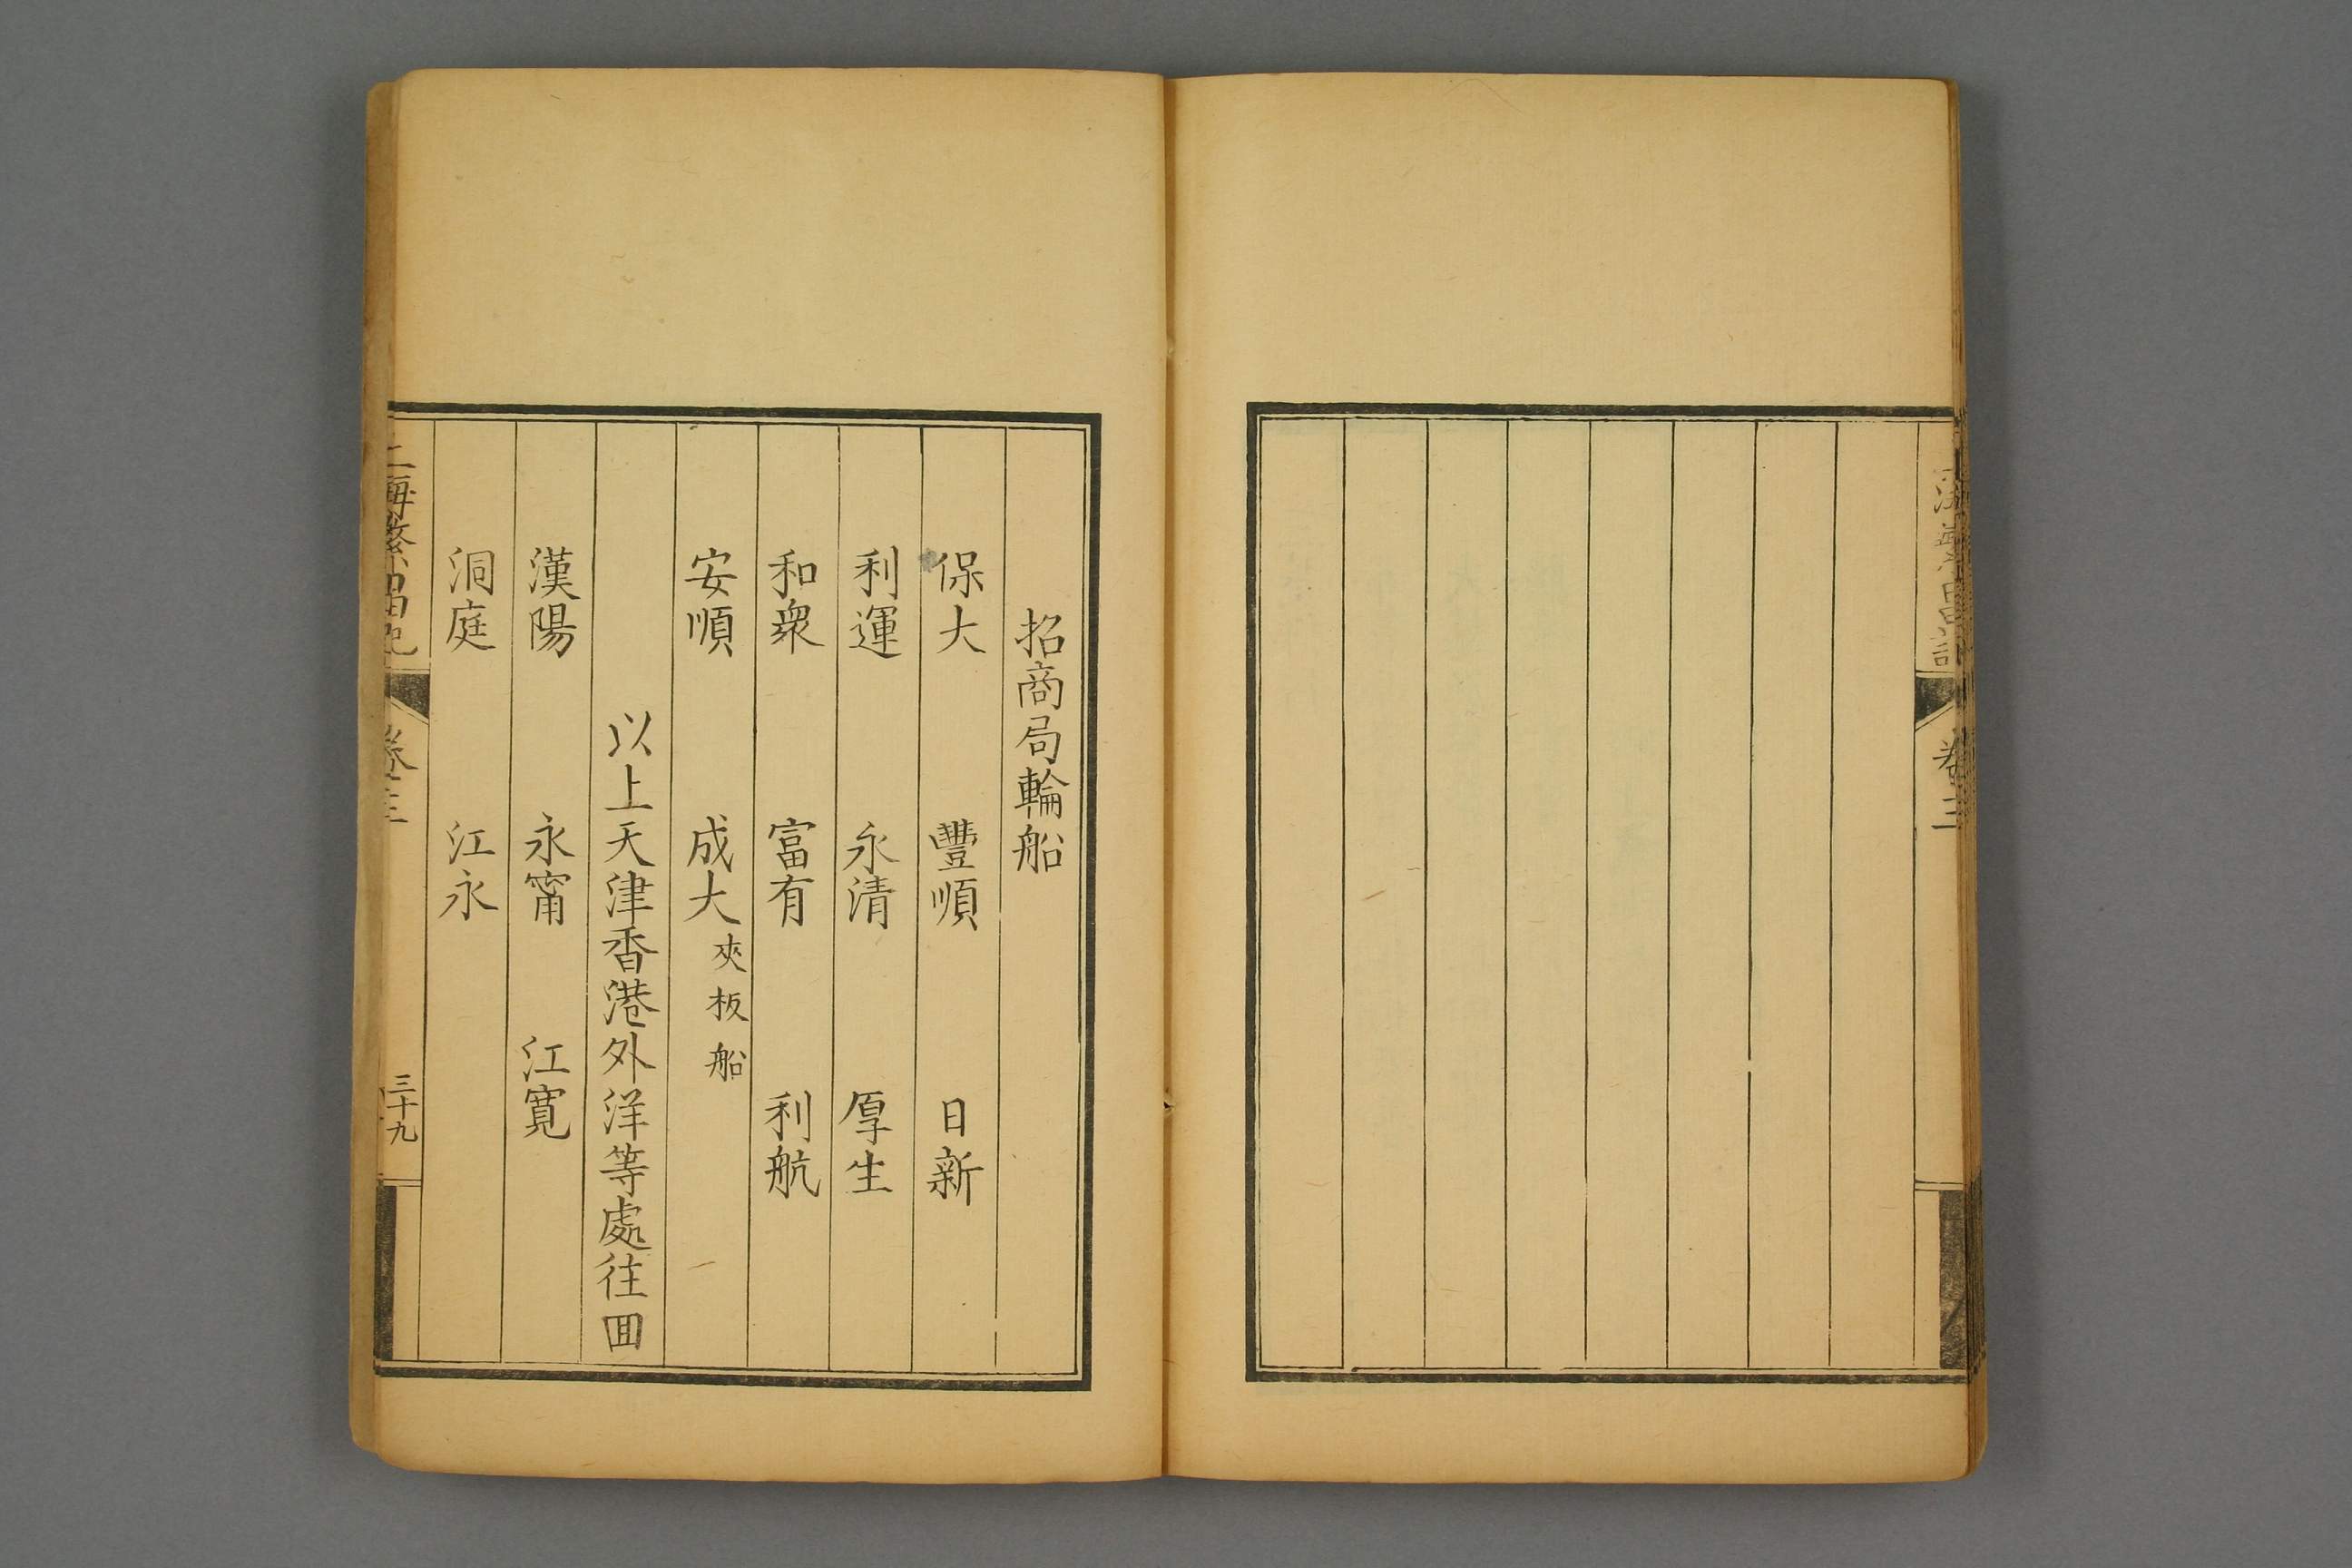 招商局輪船
保大 豐順 日新
利運 永清 厚生
和衆 富有 利航
安順 成大 夾板船
以上天津香港外洋等處往囬
漢陽 永甯 江寬
洞庭 江永
上海繁昌記 卷三 三十九
卷三